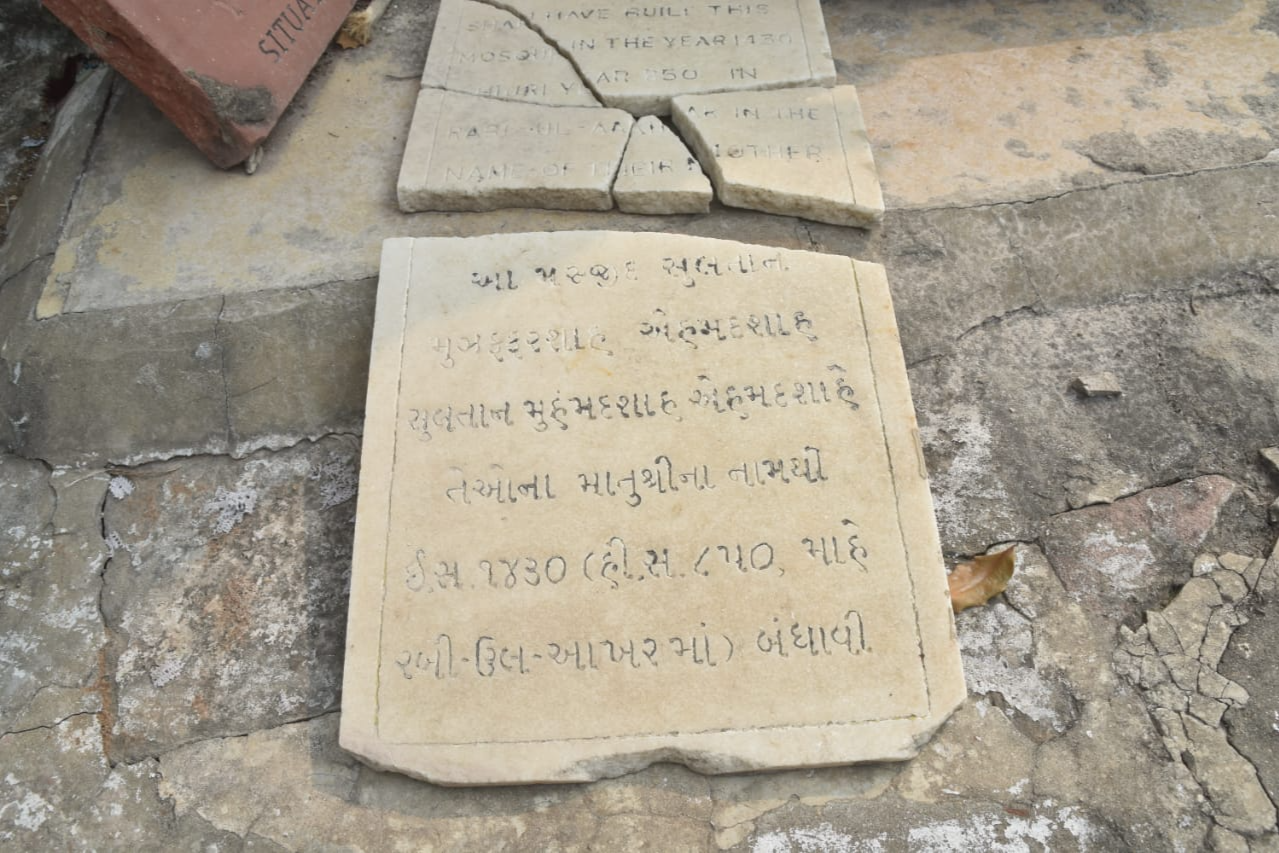 SITUA
SHAH HAVE BUILT THIS
MOSQUE IN THE YEAR 1430
HIJRI YEAR 850 IN
RABI-UL-AAKHAR IN THE
NAME OF THEIR MOTHER
આ મસ્જીદ સુલતાન
મુઝફ્ફરશાહ એહમદશાહ
સુલતાન મુહંમદશાહ એહમદશાહે
તેઓના માતુશ્રીના નામથી
ઈ.સ. ૧૪૩૦ (હી.સ. ૮૫૦, માહે
રબી-ઉલ-આખરમાં) બંધાવી.